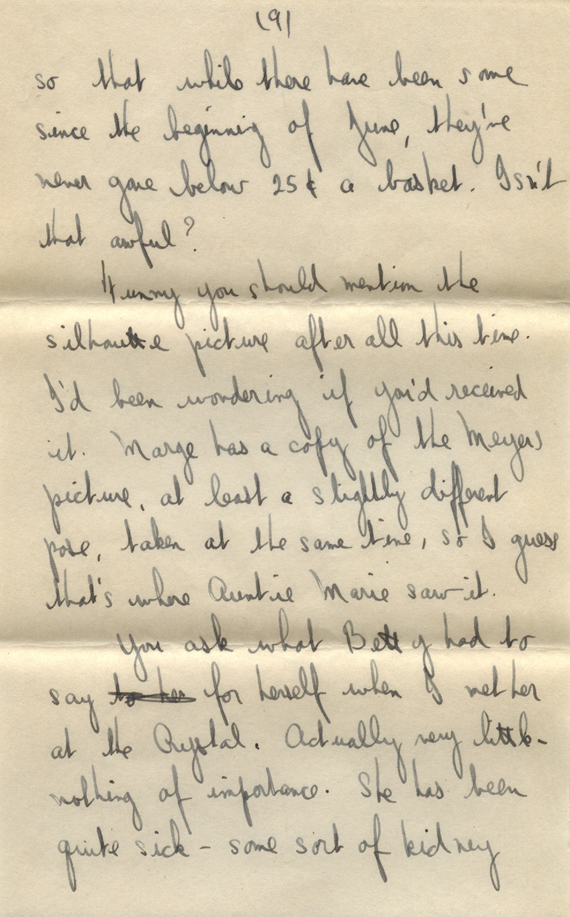 (9)
so that while there have been some
since the beginning of June, they've
never gone below 25¢ a basket. Isn't
that awful?
Funny you should mention the
silhouette picture after all this time.
I'd been wondering if you'd received
it. Marge has a copy of the Meyers
picture, at least a slightly different
pose, taken at the same time, so I guess
that's where Auntie Marie saw it.
You ask what Betty had to
say to her for herself when I met her
at the Crystal. Actually very little -
nothing of importance. She has been
quite sick - some sort of kidney